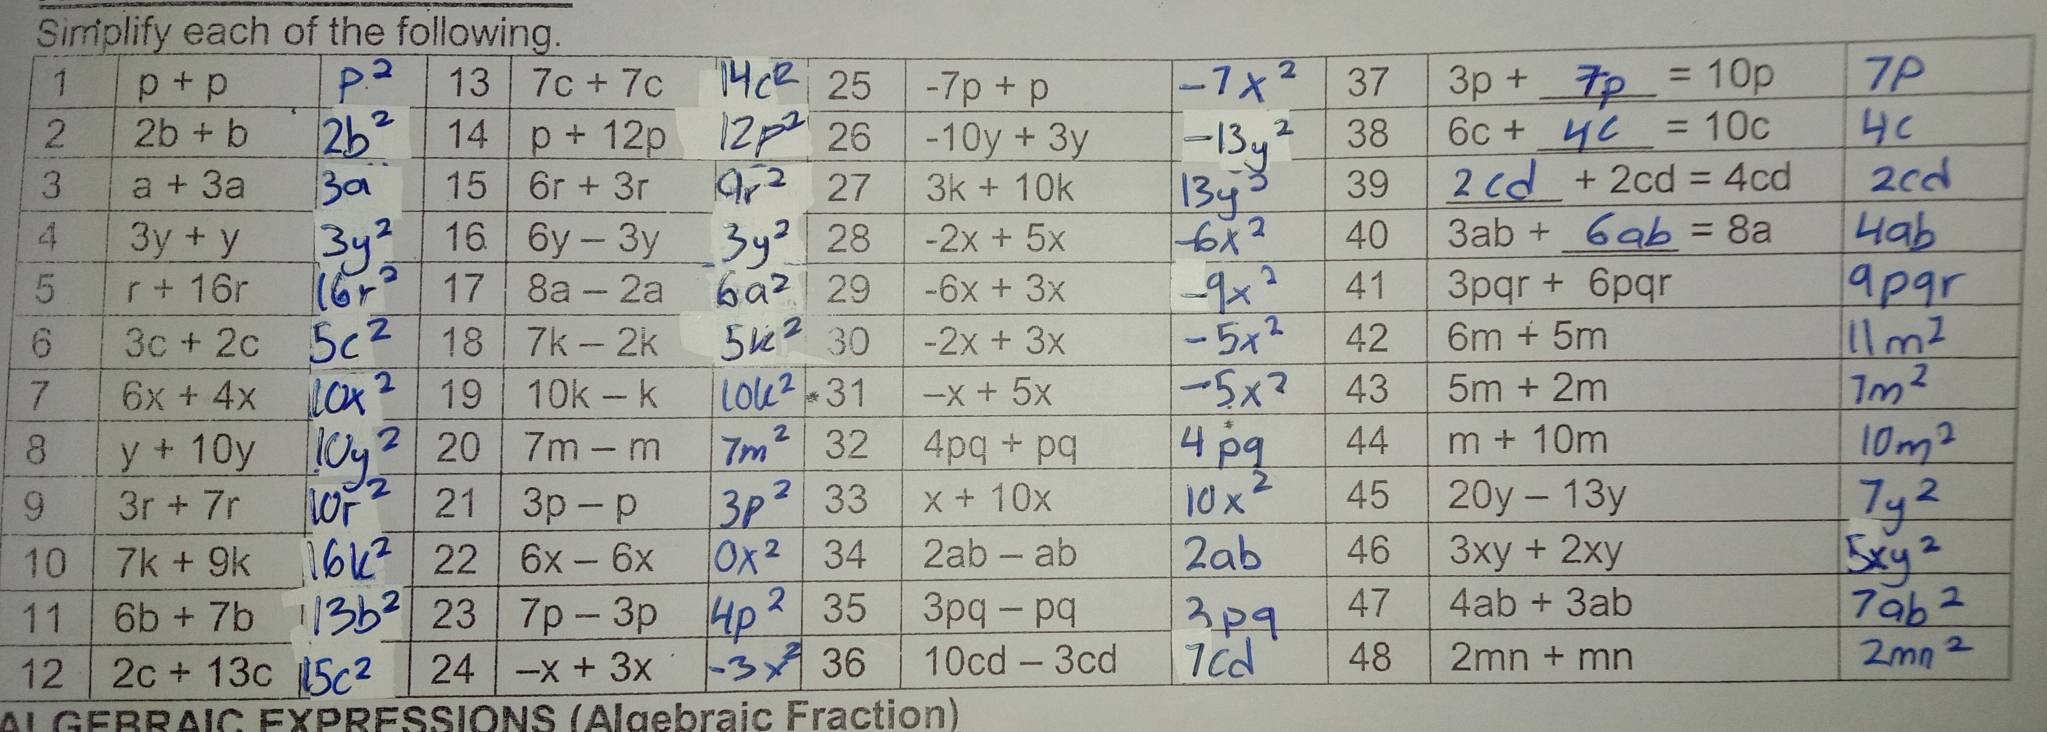 Simplify each of the following.
1 p + p p² 13 7c + 7c 14c² 25 -7p + p -7x² 37 3p + 7p = 10p 7p
2 2b + b 2b² 14 p + 12p 12p² 26 -10y + 3y -13y² 38 6c + 4c = 10c 4c
3 a + 3a 3a 15 6r + 3r 9r² 27 3k + 10k 13y² 39 2cd + 2cd = 4cd 2cd
4 3y + y 3y² 16 6y – 3y 3y² 28 -2x + 5x -6x² 40 3ab + 6ab = 8a 4ab
5 r + 16r 16r² 17 8a – 2a 6a² 29 -6x + 3x -9x² 41 3pqr + 6pqr 9pqr
6 3c + 2c 5c² 18 7k – 2k 5k² 30 -2x + 3x -5x² 42 6m + 5m 11m²
7 6x + 4x 10x² 19 10k – k 10k² 31 –x + 5x -5x² 43 5m + 2m 7m²
8 y + 10y 10y² 20 7m – m 7m² 32 4pq + pq 4pq 44 m + 10m 10m²
9 3r + 7r 10r² 21 3p – p 3p² 33 x + 10x 10x² 45 20y – 13y 7y²
10 7k + 9k 16k² 22 6x – 6x 0x² 34 2ab – ab 2ab 46 3xy + 2xy 5xy²
11 6b + 7b 13b² 23 7p – 3p 4p² 35 3pq – pq 3pq 47 4ab + 3ab 7ab²
12 2c + 13c 15c² 24 –x + 3x -3x² 36 10cd – 3cd 7cd 48 2mn + mn 2mn²
ALGEBRAIC EXPRESSIONS (Algebraic Fraction)